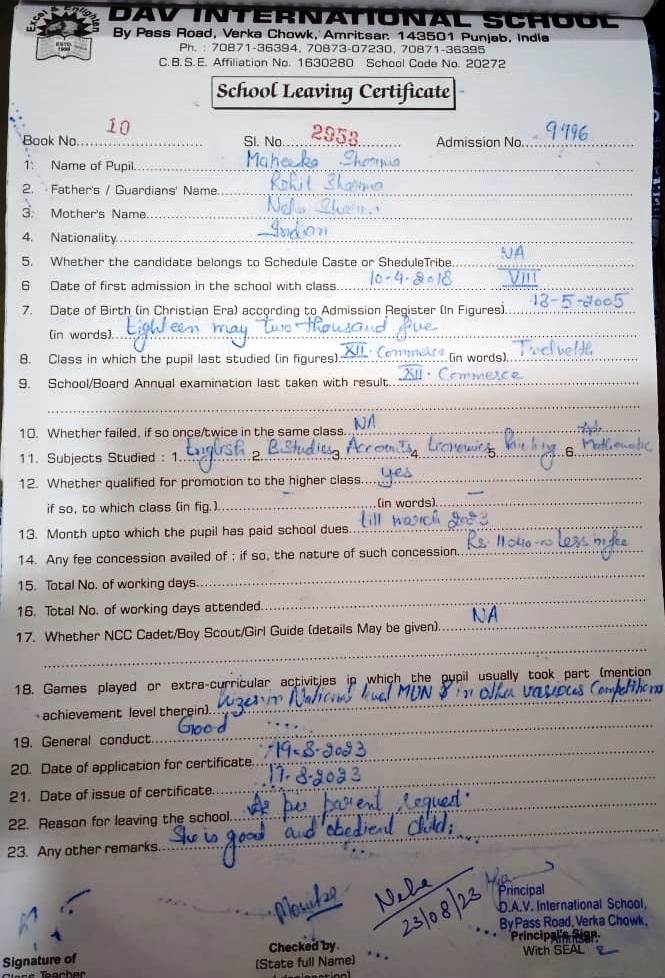 Excel & Enlighten
ESTD. 1999
DAV INTERNATIONAL SCHOOL
By Pass Road, Verka Chowk, Amritsar. 143501 Punjab, India
Ph. : 70871-36394, 70873-07230, 70871-36395
C.B.S.E. Affiliation No. 1630280 School Code No. 20272
School Leaving Certificate
Book No. 10 Sl. No. 2953 Admission No. 9796
1. Name of Pupil Maheeka Sharma
2. Father's / Guardians' Name Rohit Sharma
3. Mother's Name Neha Sharma
4. Nationality Indian
5. Whether the candidate belongs to Schedule Caste or SheduleTribe NA
6 Date of first admission in the school with class 10-4-2018 VIII
7. Date of Birth (in Christian Era) according to Admission Register (In Figures) 18-5-2005
(in words) Eighteen may two thousand five
8. Class in which the pupil last studied (in figures) XII. Commerce (in words) Twelveth
9. School/Board Annual examination last taken with result XII. Commerce
10. Whether failed, if so once/twice in the same class NA
11. Subjects Studied : 1 English 2 B.Studies 3 Accounts 4 Economics 5 Painting 6. Mathematic
12. Whether qualified for promotion to the higher class yes
if so, to which class (in fig.) – (in words) –
13. Month upto which the pupil has paid school dues till march 2023
14. Any fee concession availed of : if so, the nature of such concession Rs. less in fee
15. Total No. of working days
16. Total No. of working days attended
17. Whether NCC Cadet/Boy Scout/Girl Guide (details May be given) NA
18. Games played or extra-curricular activities in which the pupil usually took part (mention
achievement level therein) in National level MUN & in other various Competitions
19. General conduct Good
20. Date of application for certificate 19-8-2023
21. Date of issue of certificate 17-8-2023
22. Reason for leaving the school As per parent request.
23. Any other remarks She is good and obedient child.
Neha
23/08/23
Principal
D.A.V. International School,
By Pass Road, Verka Chowk,
Amritsar.
Principal's Sign.
With SEAL
Signature of
Class Teacher
Checked by
(State full Name)